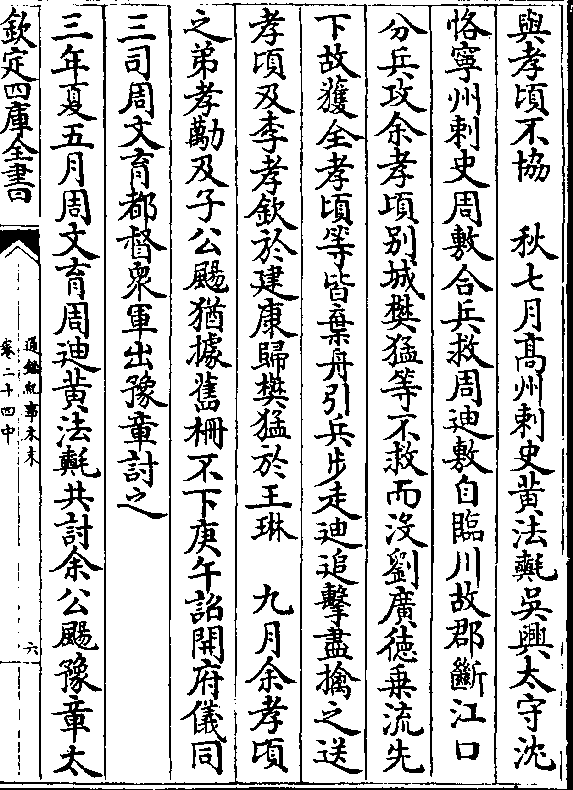 與孝頃不協　秋七月髙州刺史黄法𣰋吳興太守沈
恪寧州刺史周敷合兵救周迪敷自臨川故郡斷江口
分兵攻余孝頃别城樊猛等不救而没劉廣徳乗流先
下故獲全孝頃等皆棄舟引兵步走迪追擊盡擒之送
孝頃及李孝欽於建康歸樊猛於王琳　九月余孝頃
之弟孝勱及子公颺猶據舊柵不下庚午詔開府儀同
三司周文育都督衆軍出豫章討之
三年夏五月周文育周迪黄法𣰋共討余公颺豫章太
欽定四庫全書
通鑑紀事本末
卷二十四中
六